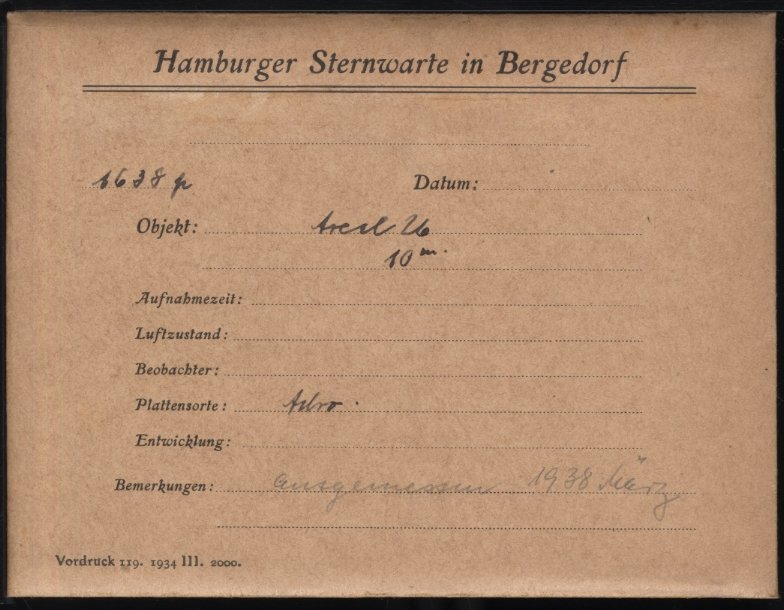 Hamburger Sternwarte in Bergedorf
1638 p
Datum:
Objekt: Areal 26
10 m.
Aufnahmezeit:
Luftzustand:
Beobachter:
Plattensorte: Astro.
Entwicklung:
Bemerkungen: ausgemessen 1938 März
Vordruck 119. 1934 III. 2000.